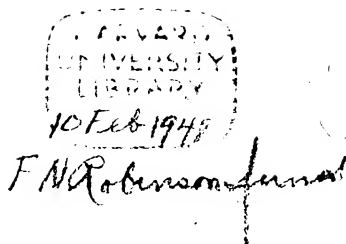 HARVARD
UNIVERSITY
LIBRARY
10 Feb 1948
F N Robinson